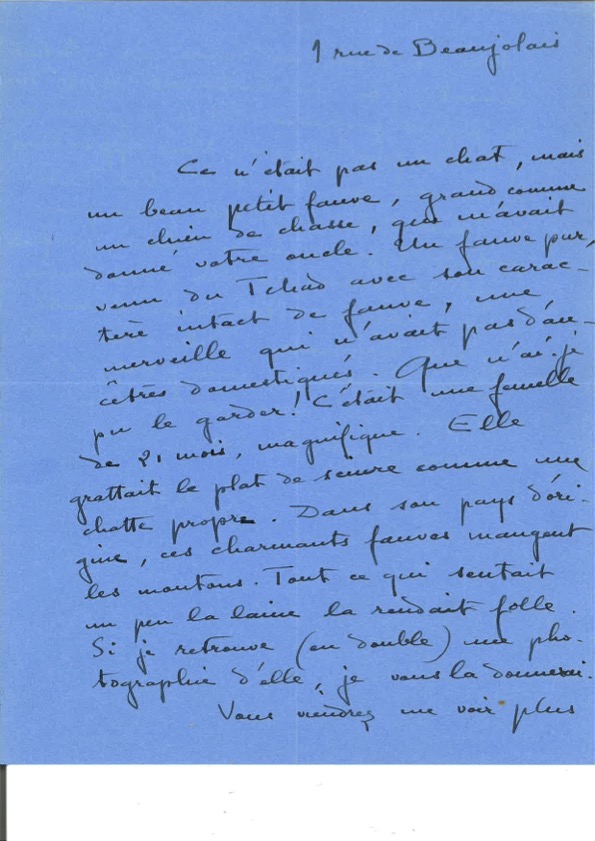 1 rue de Beaujolais
Ce n'était pas un chat, mais
un beau petit fauve, grand comme
un chien de chasse, que m'avait
donné votre oncle. Un fauve pur,
venu du Tchad avec son carac-
tère intact de fauve, une
merveille qui n'avait pas d'an-
cêtres domestiqués. Que n'ai-je
pu le garder! C'était une femelle
de 21 mois, magnifique. Elle
grattait le plat de sciure comme une
chatte propre. Dans son pays d'ori-
gine, ces charmants fauves mangent
les moutons. Tout ce qui sentait
un peu la laine la rendait folle.
Si je retrouve (en double) une pho-
tographie d'elle, je vous la donnerai.
Vous viendrez me voir plus